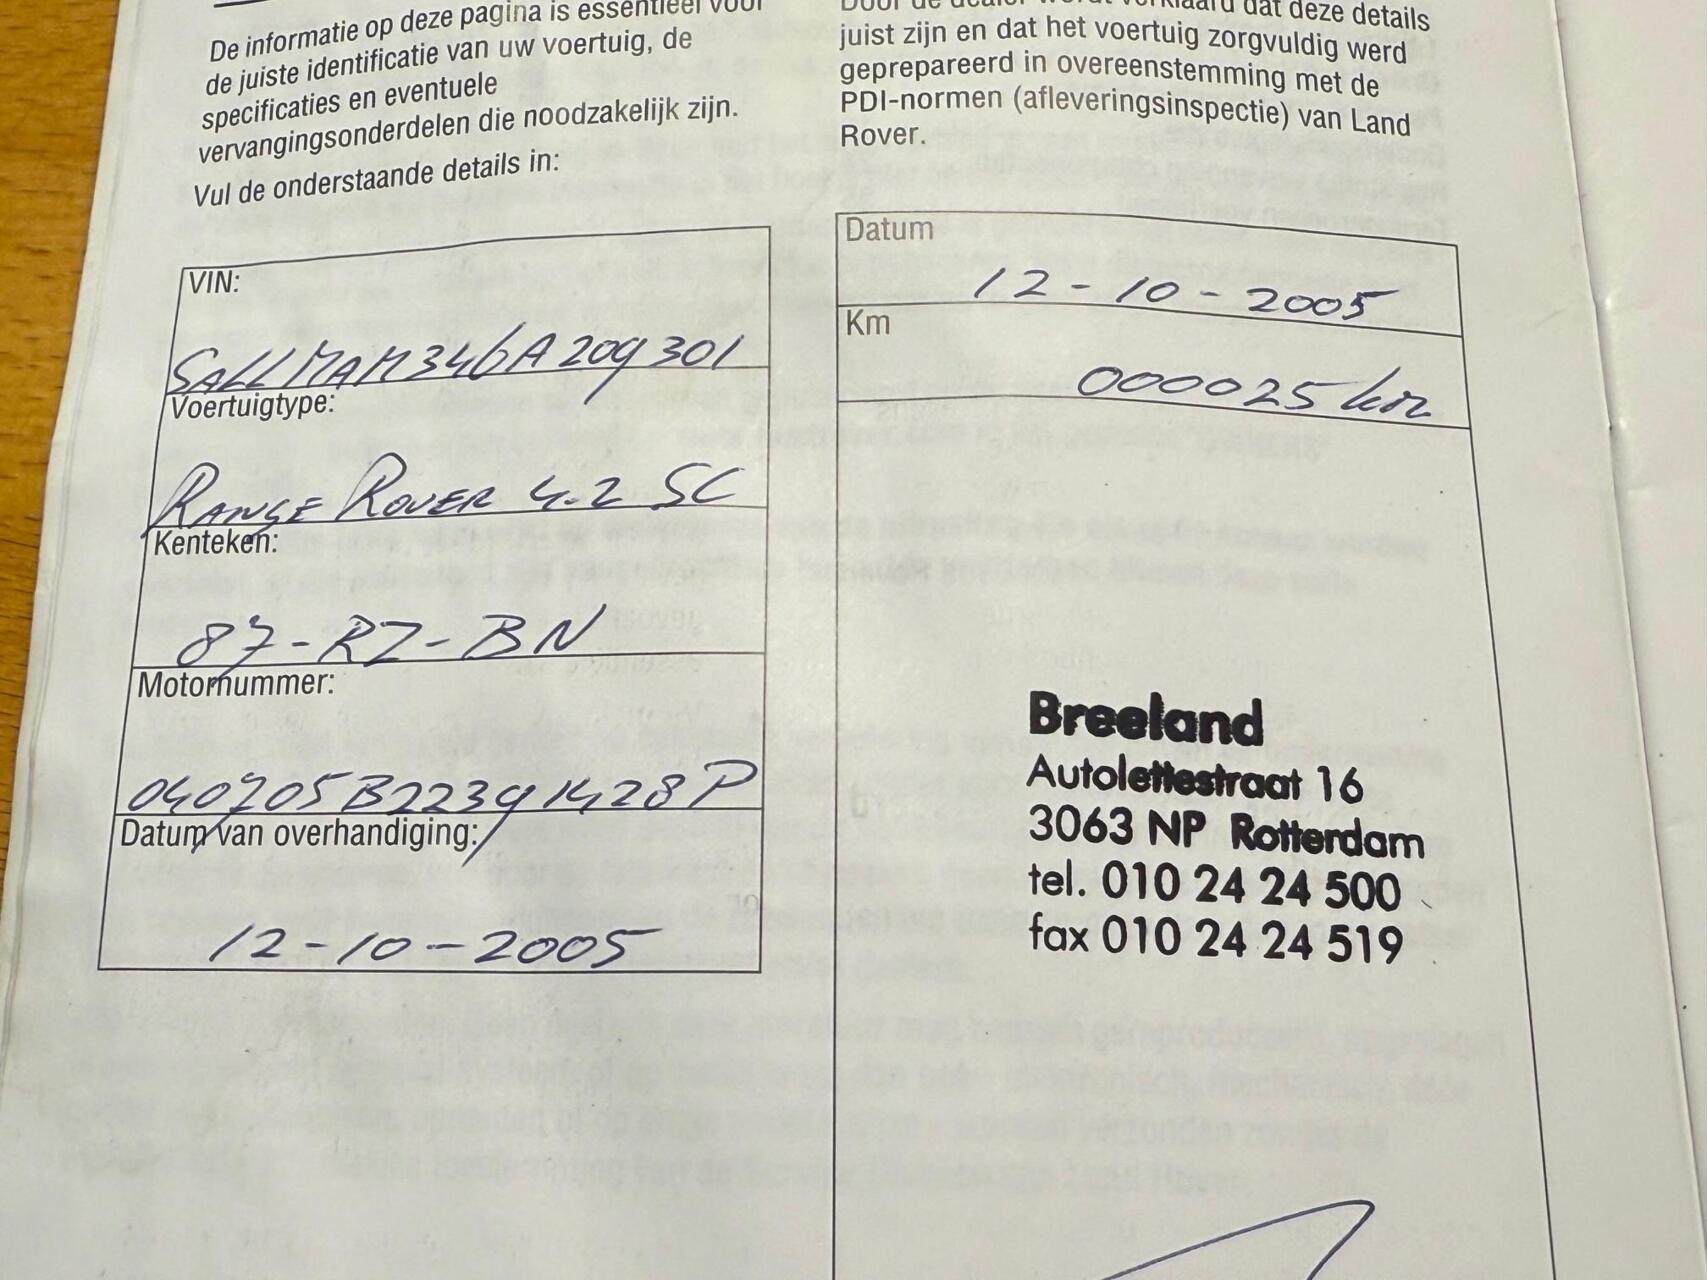 De informatie op deze pagina is essentieel voor
de juiste identificatie van uw voertuig, de
specificaties en eventuele
vervangingsonderdelen die noodzakelijk zijn.
Vul de onderstaande details in:
VIN:
SALLMAM346A209301
Voertuigtype:
RANGE ROVER 4.2 SC
Kenteken:
87-RZ-BN
Motornummer:
040705B22391428P
Datum van overhandiging:
12-10-2005
Door de dealer wordt verklaard dat deze details
juist zijn en dat het voertuig zorgvuldig werd
geprepareerd in overeenstemming met de
PDI-normen (afleveringsinspectie) van Land
Rover.
Datum
12-10-2005
Km
000025 km
Breeland
Autolettestraat 16
3063 NP Rotterdam
tel. 010 24 24 500
fax 010 24 24 519